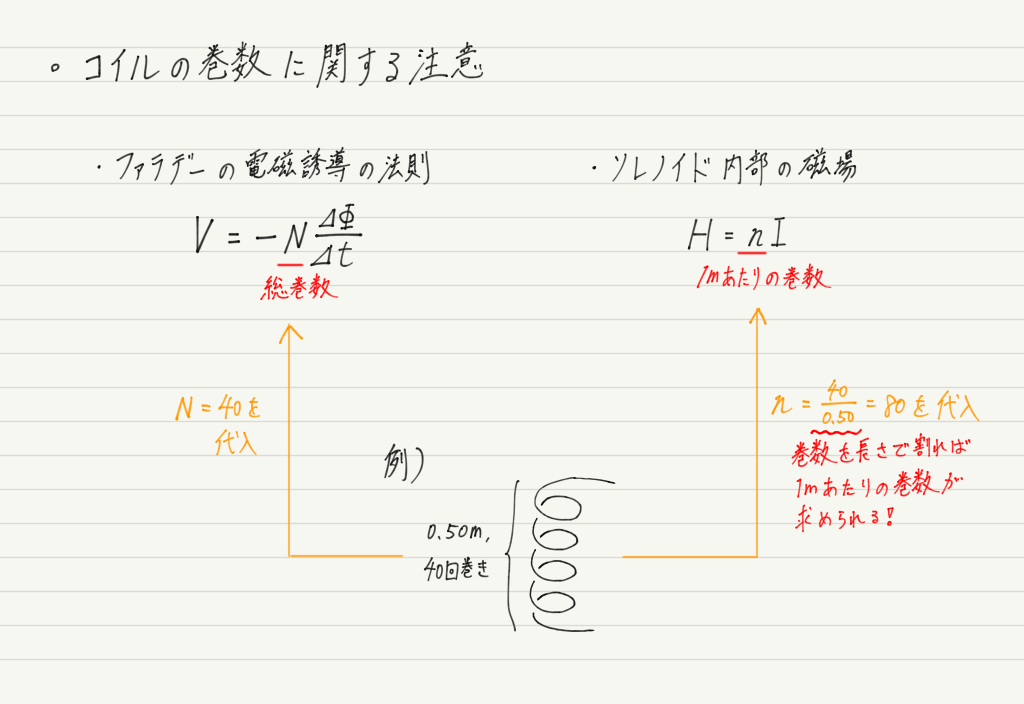 。コイルの巻数に関する注意
・ファラデーの電磁誘導の法則
V = -N ΔΦ/Δt
総巻数
N = 40を
代入
・ソレノイド内部の磁場
H = nI
1mあたりの巻数
n = 40/0.50 = 80を代入
巻数を長さで割れば
1mあたりの巻数が
求められる!
例)
0.50m,
40回巻き